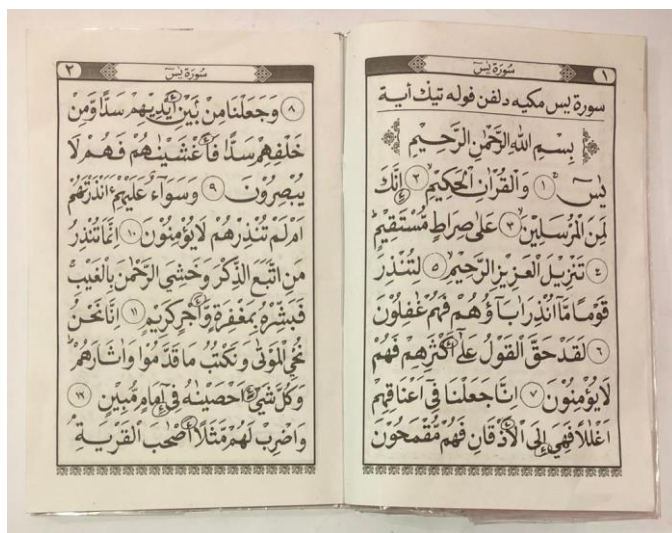 سورة يس ١
سورة يس مكيه دلفن فوله تيݢ أية
بِسْمِ اللهِ الرَّحْمٰنِ الرَّحِيْمِ
يٰسۤ ۚ ١ وَالْقُرْاٰنِ الْحَكِيْمِ ۙ ٢ اِنَّكَ
لَمِنَ الْمُرْسَلِيْنَ ۙ ٣ عَلٰى صِرَاطٍ مُّسْتَقِيْمٍ ؕ
٤ تَنْزِيْلَ الْعَزِيْزِ الرَّحِيْمِ ۙ ٥ لِتُنْذِرَ
قَوْمًا مَّآ اُنْذِرَ اٰبَآؤُهُمْ فَهُمْ غٰفِلُوْنَ
٦ لَقَدْ حَقَّ الْقَوْلُ عَلٰٓى اَكْثَرِهِمْ فَهُمْ
لَا يُؤْمِنُوْنَ ٧ اِنَّا جَعَلْنَا فِيْٓ اَعْنَاقِهِمْ
اَغْلٰلًا فَهِيَ اِلَى الْاَذْقَانِ فَهُمْ مُّقْمَحُوْنَ
سورة يس ٢
٨ وَجَعَلْنَا مِنْۢ بَيْنِ اَيْدِيْهِمْ سَدًّا وَّمِنْ
خَلْفِهِمْ سَدًّا فَاَغْشَيْنٰهُمْ فَهُمْ لَا
يُبْصِرُوْنَ ٩ وَسَوَآءٌ عَلَيْهِمْ ءَاَنْذَرْتَهُمْ
اَمْ لَمْ تُنْذِرْهُمْ لَا يُؤْمِنُوْنَ ١٠ اِنَّمَا تُنْذِرُ
مَنِ اتَّبَعَ الذِّكْرَ وَخَشِيَ الرَّحْمٰنَ بِالْغَيْبِ ۚ
فَبَشِّرْهُ بِمَغْفِرَةٍ وَّاَجْرٍ كَرِيْمٍ ١١ اِنَّا نَحْنُ
نُحْيِ الْمَوْتٰى وَنَكْتُبُ مَا قَدَّمُوْا وَاٰثَارَهُمْ ؕ
وَكُلَّ شَيْءٍ اَحْصَيْنٰهُ فِيْٓ اِمَامٍ مُّبِيْنٍ ١٢
وَاضْرِبْ لَهُمْ مَّثَلًا اَصْحٰبَ الْقَرْيَةِ ۘ